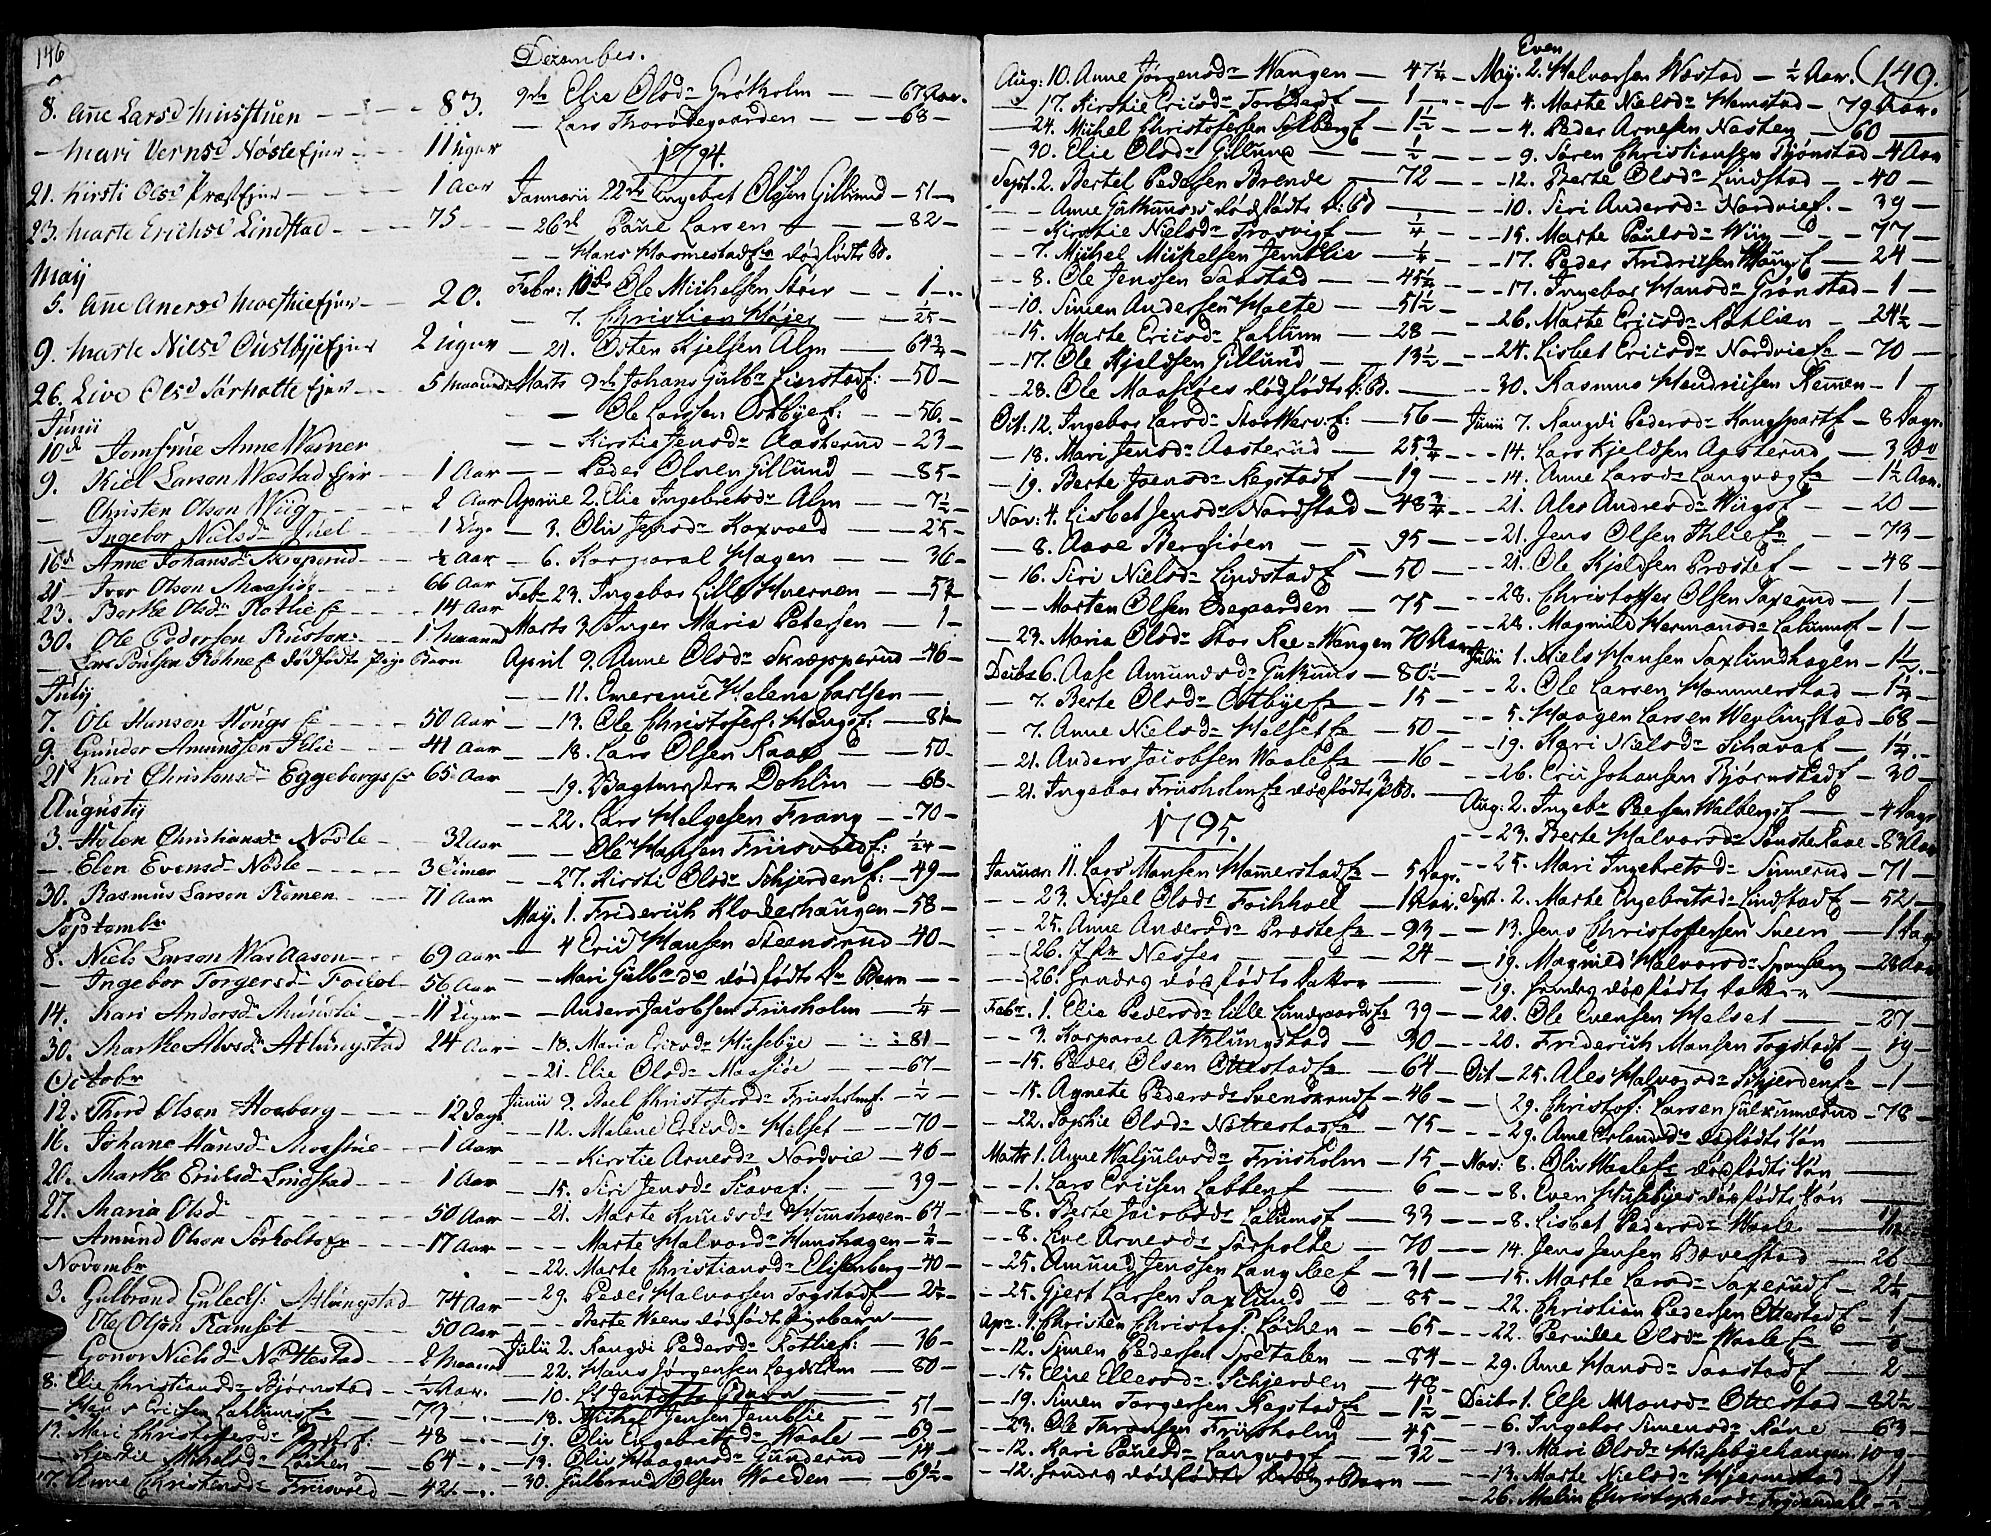 146
8. Ane Larsd Huusstuen - - - 83.
- Mari Vernsd Nøste Ejer - - 11 Uger
21. Kirsti Olsd Præst Ejer - - 1 Aar
23. Marte Erichsd Lindstad - - 75 -
May
5. Ane Anersd Moestue Ejer - - 20.
9. Marte Nielsd Oustbye Ejer 2 Uger
26. Live Olsd Sørholte Ejer - - 5 Maaned
Junii
10de Jomfrue Anne Warner
9. Kiel Larson Wæstad Ejer - 1 Aar
- Christen Olson Wiig - - 2 Aar
- Ingebor Nielsdr Juel - - 1 Uge
16de Anne Johansdr Skræperud - ½ Aar
21 - Iver Olson Maasiøe - 66 Aar
23. Berthe Olsdr Rotlie - 14 Aar
30. Ole Pedersen Rustan: - 1 Maaned
- Lars Poulsen Røhne dødfødte Pige Barn
July
7. Ole Hansen Hougs - - - 50 Aar
9. Gunder Amundsen Ihlie - - - 41 Aar
21 Kari Christensdr Eggebergs - 65 Aar
Augusty
3. Helen Christiansdr Nøsle - - 32 Aar
- Elen Evensdr Nøsle - - - 3 Timer
30. Rasmus Larson Remen - - - 71 Aar
Septembr
8. Niels Larson Wasaasen - - 69 Aar
- Ingebor Torgersdr Foihol - 56 Aar
14. Kari Andersdr - - 11 Uger
30. Marthe Alvsdr Atlungstad 24 Aar
Octobr
12. Thord Olsen Hosberg - - - 12 Dage
16. Johane Hansdr Moestue - - 1 Aar
20. Marthe Erichsdr Lindstad - - 1 Aar
27. Maria Olsdr - - - 50 Aar
- Amund Olson Sørholte - - 17 Aar
Novembr
3. Gulbrand Gulechs: Atlungstad - 74 Aar
- Ole Olson Ramsøt - - - 50 Aar
- Gonor Nielsdr Nøttestad - - 2 Maaned
8. Elie Christiansdr Bjørnstad - ½ Aar.
- Hans Ericsen Lalumsf - - 73 -
13. Mari Christophersdr - 48 -
- Kjerstie Mikelsdr Løchen - 64 -
17. Anne Christensdr Friisvold - 42 -
Dezember.
9de Elie Olsdr Grøtholm - - 67 Aar.
- Lars Thorødegaarden - - 68 -
1794.
Januarii 22de Ingebret Olsen Gillund - 51 -
- 26de Paul Larsen - - 82 -
- - Hans Hammestads dødfødte B.
Febr: 10de Ole Michelsen Stør - - 1 -
- 7. Christian Høyer - - 1/25 -
- 21. Osten Kjelsen Alm - 64¾ -
Marts 9de Johans Gulbr: Fierstad: - 50 -
- - Ole Larsen Ostbyef: - - 56 -
- - Kirstie Jensdr Aasterud - 23 -
- - Peder Olsen Gillund - 85 -
Aprilie 2. Elie Ingebretsdr Alm - 7½ -
- 3. Oliv Jensdr Korvold - 25 -
- 6. Korporal Hagen - - 36 -
Febr 23. Ingebor Lille Hvernen - - 57 -
Marts 3. Inger Maria Petersen - 1 -
April 9. Anne Olsdr Skræpperud - 46 -
- - 11. Emerenie Helena Carlsen -
- - 13. Ole Christofers: Haugsf: - 81 -
- - 18. Lars Olsen Raae - 50 -
- - 19. Vagtmesteren Dohlin - 66 -
- - 22. Lars Helgesen Frang - 70 -
- - Ole Hansen Friisvoldf: 1/24 -
- - 27. Kirsti Olsdr Schjerdenf: - 49 -
May. 1. Friderich Klokkerhaugen - 58 -
- - 4 Erich Hansen Steensrud - 40 -
- - Mari Gulbrds dødfødte Dr Barn - -
- - Anders Jacobsen Friisholm - ¼ -
- - 13. Maria Ericsdr Husebye - - 81 -
- - 21. Elie Olsdr Maasiøe - - 67 -
Junii 9. Christofersdr Friisholmf. - ½ -
- - 12. Malene Ericsdr Helset - 70 -
- - Kirstie Arnesdr Nordvie - 46 -
- - 15. Siri Jensdr Skavaf: - - 39 -
- - 21. Marte Knudsdr Hunshagen - 64 -
- - Marte Halvordr Hunshagen - ¼ -
- - 22. Marte Christiansdr Elisenberg - 40 -
- - 29. Peder Halvorsen Togstad - 2½ -
- - Berte Weens dødfødt Pigebarn -
Julii 2. Rangdi Pedersdr Rotlief: - 36 -
- - 22. Hans Jørgensen - 80 -
- - 10. Lt Jentofts Barn -
- - 18. Michel Jensen Jemblie - - 51 -
- - 19. Oliv Engebretsdr Waale - 69 -
- - 13. Oliv Haagensdr Gunderud - 14 -
- 30. Gulbrand Olsen Woeden - 69½ -
Aug: 10. Anne Jørgensdr Wangen - 47¼ -
- 17. Kirstie Ericsdr - 1 -
- 24. Michel Christofersen Solbergf - 1½ -
- 30. Elie Olsdr Gillund - ½ -
Sept. 2. Bertel Pedersen Brende - 72 -
- - Anne dødfødte
- - Kirstie Nielsdr - ¼ -
- - 7. Michel Michelsen Jemblie - ¼ -
- - 8. Ole Jenssen Saxstad - 45½ -
- - 10. Simen Andersen Holte - 51½ -
- - 15. Marte Ericsdr Lallum - 28 -
- - 17. Ole Kjeldsen Gillund - 13½ -
- - 28. Ole Maasiøes dødfødte -
Oct: 12. Ingebor Larsdr - 56 -
- 18. Mari Jensdr Aasterud - 25¾ -
- 19. Berte Joensdr Kegstadf - 19 -
Nov: 4. Lisbet Jensdr Nordstad - 48¾ -
- 8. Aase Bergsiøen - - 95 -
- 16. Siri Nielsdr Lindstadf - 50 -
- - Morten Olsen Ødegaarden - 75 -
- 23. Maria Olsdr Stor Ree = Wangen 70 Aar
Decbr 6. Aase Amundsdr - 80½ -
- 7. Berte Olsdr Ostbye - 15 -
- 7. Anne Nielsdr Helset - 50 -
- 21. Anders Jacobsen Waale - 16 -
- 21. Ingebor Friisholm dødfødte
1795.
Januar: 11. Lars Hansen Hamerstad - 5 Dage
- - 23. Sissel Olsdr Foihhoel - 1 Dag.
- - 25. Anne Andersdr Præste - 93 -
- 26. Jfr Nesses - - - 24 -
- 26. hendes dødfødte Datter -
Febr. 1. Elie Pedersdr Lille Lundgaard 39 -
- - 3. Korporal Atlungstad - 30 -
- - 15. Peder Olsen Ottestad - 64 -
- - 15. Agnete Pedersdr Svensrundf - 46 -
- - 22. Sophie Olsdr Nøttestad - 75 -
Marts 1. Anne Haljulvsdr Friisholm - 15 -
- - 1. Lars Ericsen Labbenf - 6 -
- - 8. Berte Jacobsdr Lalumsf - 33 -
- - 8. Live Arnesdr Sørholte - 70 -
- - 25. Amund Jenssen Lang Reef - 31 -
- - 25. Gjert Larsen Saxlund - 85 -
Apr. 1. Christen Christof: Løchen - 65 -
- - 12. Simen Pedersen Spetalen - 84 -
- - 15. Eline Ellevsdr Schjerden - 48 -
- - 19. Simen Torgersen Kegstad - 1½ -
- - 23. Ole Thronsen Friisholm - 45 -
- - 12. Kari Poulsdr Langvægf - 32 -
- - 12. hendes dødfødte Drenge Barn -
149.
Even
May. 2. Halvorsen Wæstad - ½ Aar.
- 4. Marte Nielsdr Hamstad - 79 Aar.
- 4. Peder Arnesen Næsten - 60 -
- 9. Søren Christiansen Bjønstad - 4 Aar
- - 12. Berte Olsdr Lindstad - 40 -
- - 10. Siri Andersdr Nordvief. - 39 -
- - 15. Marte Poulsdr Wiig - 77 -
- - 17. Peder Fridricsen Haugf - 24 -
- - 17. Ingebor Hansdr Grønstad - 1 -
- - 26. Marte Ericsdr Rotlien - 24½ -
- - 24. Lisbet Ericsdr Nordvie - 70 -
- 30. Rasmus Hendricksen Remen - 1 -
Junii 7. Rangdi Pedersdr - 8 Dage
- - 14. Lars Kjeldsen Aasterud - 3 Do
- - 14. Anne Larsdr Langvæg - 1½ Aar.
- - 21. Ales Andersdr Wiigsf - 20 -
- - 21. Jens Olsen Ihlie - 73 -
- - 21. Ole Kjeldsen Præstef - 48 -
- - 28. Christoffer Olsen Saxerud - 1 -
- - 28. Magnild Hermansdr Lalumsf - 1 -
Julii 1. Niels Hansen Saxlundhagen - 1½ -
- - 2. Ole Larsen Hammerstad - 1¼ -
- - 5. Haagen Larsen Weflingstad - 68 -
- - 19. Kari Nielsdr Schavaf - 1¼ -
- - 26. Eric Johansen Bjørnstadf - 30 -
Aug: 2. Ingebr Persen Walbergsf - 4 Dage
- - 23. Berte Halvorsdr - 83 Aar
- - 25. Mari Ingebretsdr Simerud - 71 -
Sept. 2. Marte Engebretsdr Lindstadf - 52 -
- - 13. Jens Christoffersen Sveen - 1 Dag
- - 19. Magnild Halvorsdr - 28 Aar
- - 19. hendes dødfødte -
- - 20. Ole Evensen Helset - - 27 -
- - 20. Friderich Hansen Togstadf - 19 -
Oct - 25. Ales Halvorsdr Schjerden - 1 -
- 29. Christof: Larsen Gulkunnerud - 78 -
- 29. Anne Erlandsdrs dødfødte Søn
Nov: 8. Oliv Waale dødfødte Søn
- - 8. Even Husebyes dødfødte Søn
- - 8. Lisbet Pedersdr Waale
- - 14. Jens Jensen Bævestad - 26 -
- - 15. Marte Larsdr Saxerudf - 2½ -
- - 22. Christian Pedersen Ottestadf - 1 -
- - 22. Pernille Olsdr Waale - 8 -
- - 29. Anne Hansdr Saxstadf - 2 -
Decbr 1. Else Monsdr Ottestad - 82½ -
- 6. Ingebor Simensdr Røne - 63 -
- - 13. Mari Olsdr Husebyehaugen 10
- - 13. Marte Nielsdr Hjermstad - 1 -
- 26. Malin Christophersdr Frydendahl - ½ -